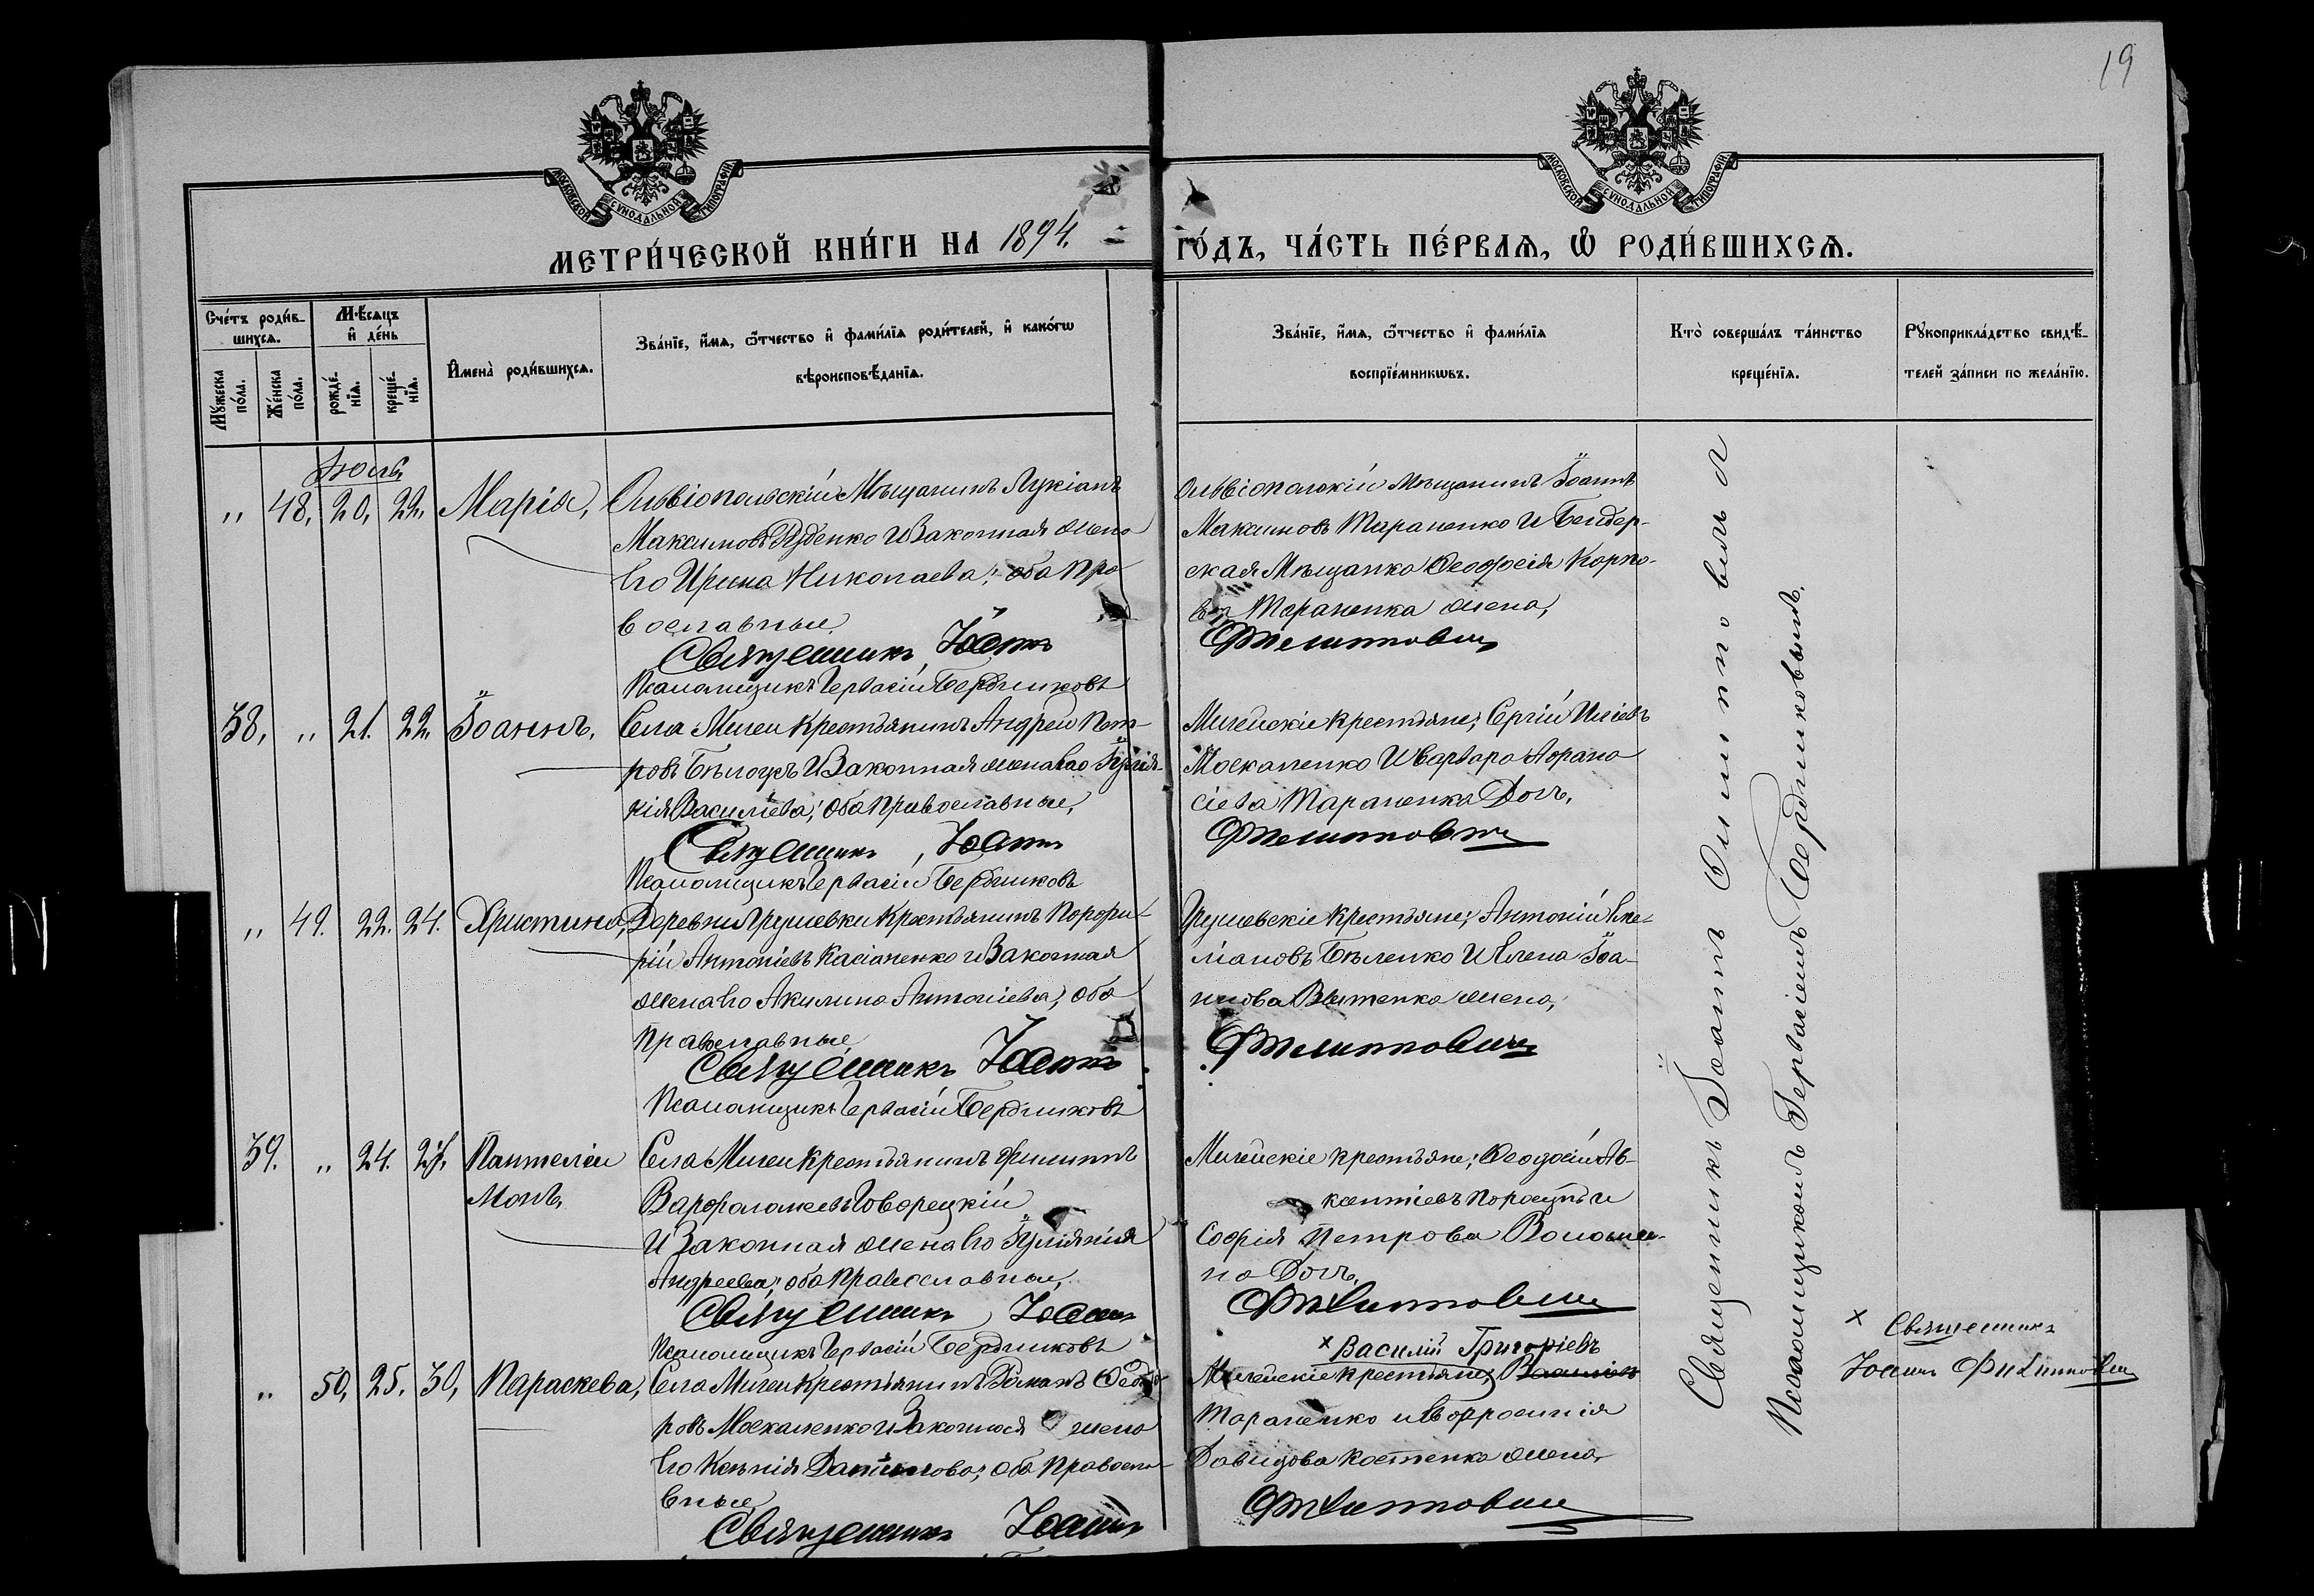 19
МОСКОВСКОЙ СѴНОДАЛЬНОЙ ТИПОГРАФІИ
МОСКОВСКОЙ СѴНОДАЛЬНОЙ ТИПОГРАФІИ
МЕТРИ́ЧЕСКОЙ КНИ́ГИ НА 1894. ГО́ДЪ, ЧА́СТЬ ПЕ́РВАѦ, Ѡ РОДИ́ВШИХСѦ.
Сче́тъ роди́в-
шихсѧ.
Мꙋ́жеска
по́ла.
Же́нска
по́ла.
Мѣ́сѧцъ
и҆ де́нь
рожде́-
нїѧ.
креще́-
нїѧ.
И҆мена̀ роди́вшихсѧ.
Зва́нїе, и҆́мѧ, ѻ҆́тчество и҆ фами́лїѧ роди́телей, и҆ како́гѡ
вѣроисповѣ́данїѧ.
Зва́нїе, и҆́мѧ, ѻ҆́тчество и҆ фами́лїѧ
воспрїе́мникѡвъ.
Кто̀ соверша́лъ та́инство
креще́нїѧ.
Рꙋкоприкла́дство свидѣ́-
телей за́писи по жела́нїю.
Іюль
„ 48, 20, 22, Марія,
Ольвіопольскій Мѣщанинъ Лукіанъ
Максимовъ Руденко и Законная жена
Его Ирина Николаева; оба Пра
вославные,
Священникъ Іоаннъ
Псаломщикъ Гервасій Бердниковъ
Ольвіопольскій Мѣщанинъ Іоаннъ
Максимовъ Тараненко и Бендер-
ская Мѣщанка Феодосія Карпо-
ва Тараненка жена,
Филипповичъ
38, „ 21. 22, Іоаннъ,
Села Мигеи Крестьянинъ Андрей Пет-
ровъ Бѣлоусъ и Законная жена Его Іулія-
нія Василіева; оба Православные,
Священникъ Іоаннъ
Псаломщикъ Гервасій Бердниковъ
Мигейскіе крестьяне; Сергій Иліевъ
Москаленко и Варвара Афана
сіева Тараненка Дочь,
Филипповичъ
„ 49. 22. 24. Христина,
Деревни Грушевки Крестьянинъ Порфи-
рій Антоніевъ Касіяненко и Законная
жена Его Акилина Антоніева; оба
Православные,
Священникъ Іоаннъ
Псаломщикъ Гервасій Бердниковъ
Грушевскіе крестьяне; Антоній Еме-
ліановъ Бѣленко и Елена Іоа-
ннова жена,
Филипповичъ
39. „ 24. 27. Пантелеи
монъ,
Села Мигеи крестьянинъ Филиппъ
Варфоломеевъ Говорецкій
и Законная жена Его Іуліянія
Андреева; оба Православные,
Священникъ Іоаннъ
Псаломщикъ Гервасій Бердниковъ
Мигейскіе крестьяне; Феодосій Ав-
ксентіевъ и
Софія Петрова Волоши-
на Дочь,
Филипповичъ
„ 50, 25. 30, Параскева,
Села Мигеи Крестьянинъ Романъ Феодо
ровъ Москаленко и Законная жена
Его Ксенія Даніилова; оба Правосла-
вные,
Священникъ Іоаннъ
х Василій Григоріевъ
Мигейскіе крестьяне;
Тараненко и Евфросинія
Давидова Костенка жена,
Филипповичъ
Священникъ Іоаннъ Филипповичъ съ
Псаломщикомъ Гервасіемъ Бердниковымъ.
х Священникъ
Іоаннъ Филипповичъ